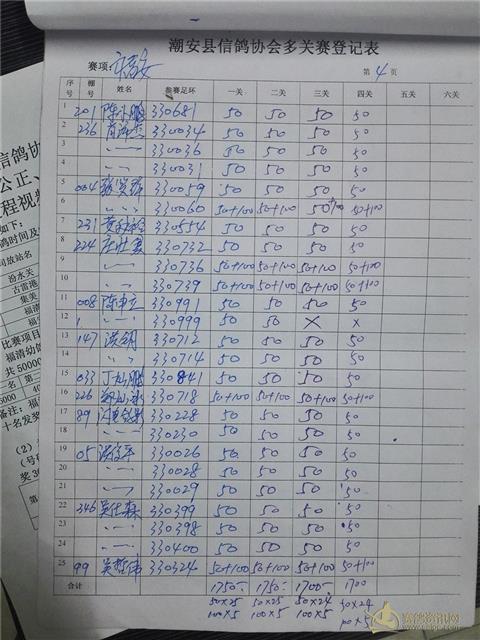 潮安县信鸽协会多关赛登记表
赛项: 福安 第 4 页
序号 棚号 姓名 参赛足环 一关 二关 三关 四关 五关 六关
1 201 陈小鹏 330681 50 50 50 50
2 236 330034 50 50 50 50
3 330036 50 50 50 50
4 330031 50 50 50 50
5 004 330059 50 50 50 50
6 330060 50+100 50+100 50+100 50+100
7 231 330554 50 50 50 50
8 224 330732 50 50 50 50
9 330736 50+100 50+100 50+100 50+100
10 330739 50+100 50+100 50+100 50+100
11 008 330991 50 50 50 50
12 330999 50 50 × ×
13 147 洪钢 330712 50 50 50 50
14 330714 50 50 50 50
15 033 丁灿鹏 330841 50 50 50 50
16 226 330718 50+100 50+100 50+100 50+100
17 89 330228 50 50 50 50
18 330230 50 50 50 50
19 05 330026 50 50 50 50
20 330028 50 50 50 50
21 330029 50 50 50 50
22 346 吴仕森 330399 50 50 50 50
23 330398 50 50 50 50
24 330400 50 50 50 50
25 99 吴哲伟 330324 50+100 50+100 50+100 50+100
合计 1750- 1750- 1700- 1700
50×25 50×25 50×24 50×24
100×5 100×5 100×5 100×5
信鸽协
公正、
程视频
如下:
鸽时间及
司放站名
汾水关
古雷港
集美
福清
福
比赛项目
福清幼鸽
共 50000
名 第二
000 40
备注: 福
十名发奖
(2)
(号码
奖 30
第